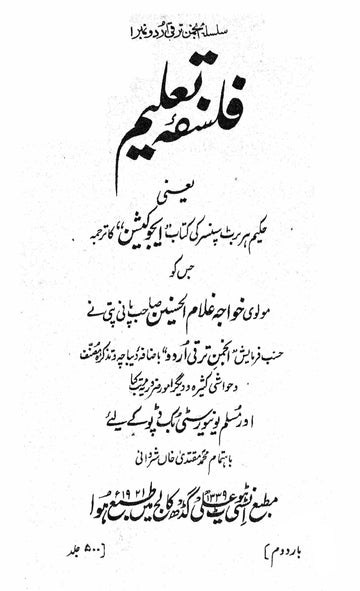 سلسلہ انجمن ترقی اُردو نمبر ا
فلسفۂ تعلیم
یعنی
حکیم ہربرٹ سپنسر کی کتاب "ایجوکیشن" کا ترجمہ
جس کو
مولوی خواجہ غلام الحسنین صاحب پانی پتی نے
حسب فرمایش "انجمن ترقی اُردو" باضافہ دیباچہ و تذکرہ مصنف
و حواشی کثیرہ و دیگر امور ضروریہ مرتب کیا
اور مُسلم یونیورسٹی بُک ڈپو کے لیے
باہتمام محمد مقتدیٰ خاں شروانی
مطبع انسٹی ٹیوٹ علی گڈھ کالج میں طبع ہُوا
۱۳۳۹ھ ۱۹۲۱ء
بار دوم] [۵۰۰ جلد